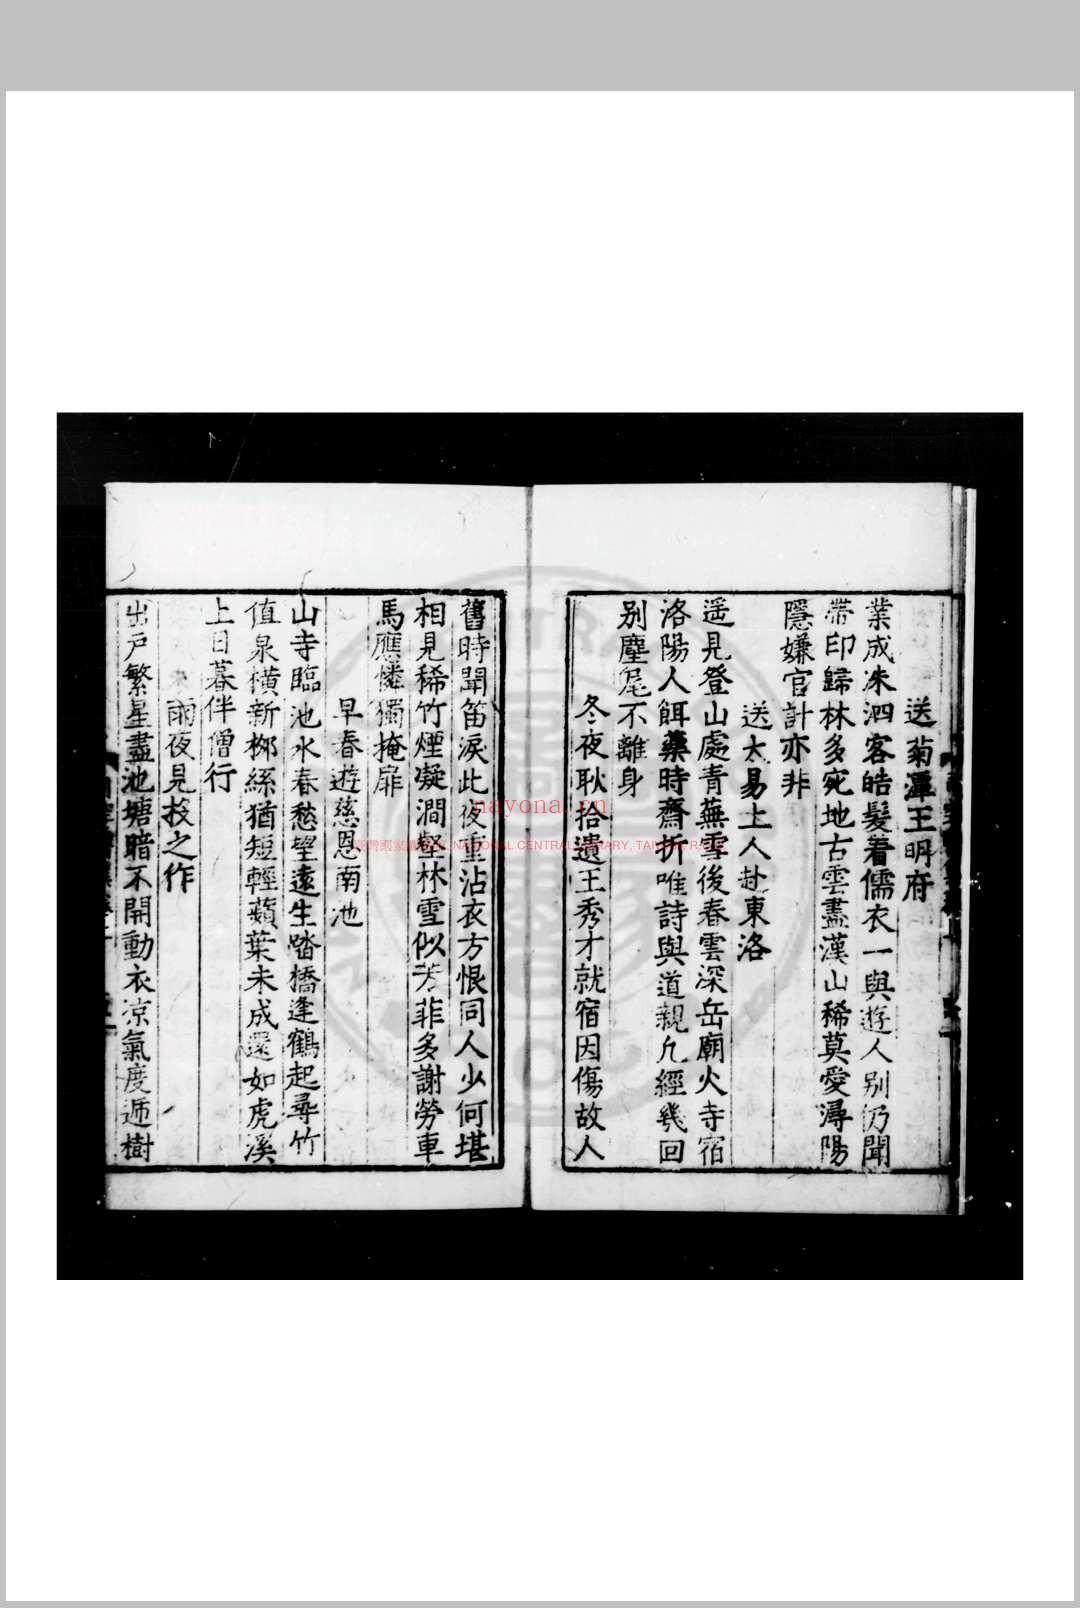 送菊潭王明府
業成洙泗客皓髮着儒衣一與遊人别仍聞
帶印歸林多宛地古雲盡漢山稀莫愛潯陽
隱嫌官計亦非
送太易上人赴東洛
遥見登山處青蕪雪後春雲深岳廟火寺宿
洛陽人餌藥時齋折唯詩與道親凡經幾回
别塵尾不離身
冬夜耿拾遺王秀才就宿因傷故人
舊時聞笛淚此夜重沾衣方恨同人少何堪
相見稀竹煙凝澗壑林雪似芳菲多謝勞車
馬應憐獨掩扉
早春遊慈恩南池
山寺臨池水春愁望遠生踏橋逢鶴起尋竹
值泉横新栁絲猶短輕蘋葉未成還如虎溪
上日暮伴僧行
雨夜見投之作
出户繁星盡池塘暗不開動衣凉氣度遞樹
nayona.cn
NATIONAL CENTRAL LIBRARY, TAIWAN, R.O.C